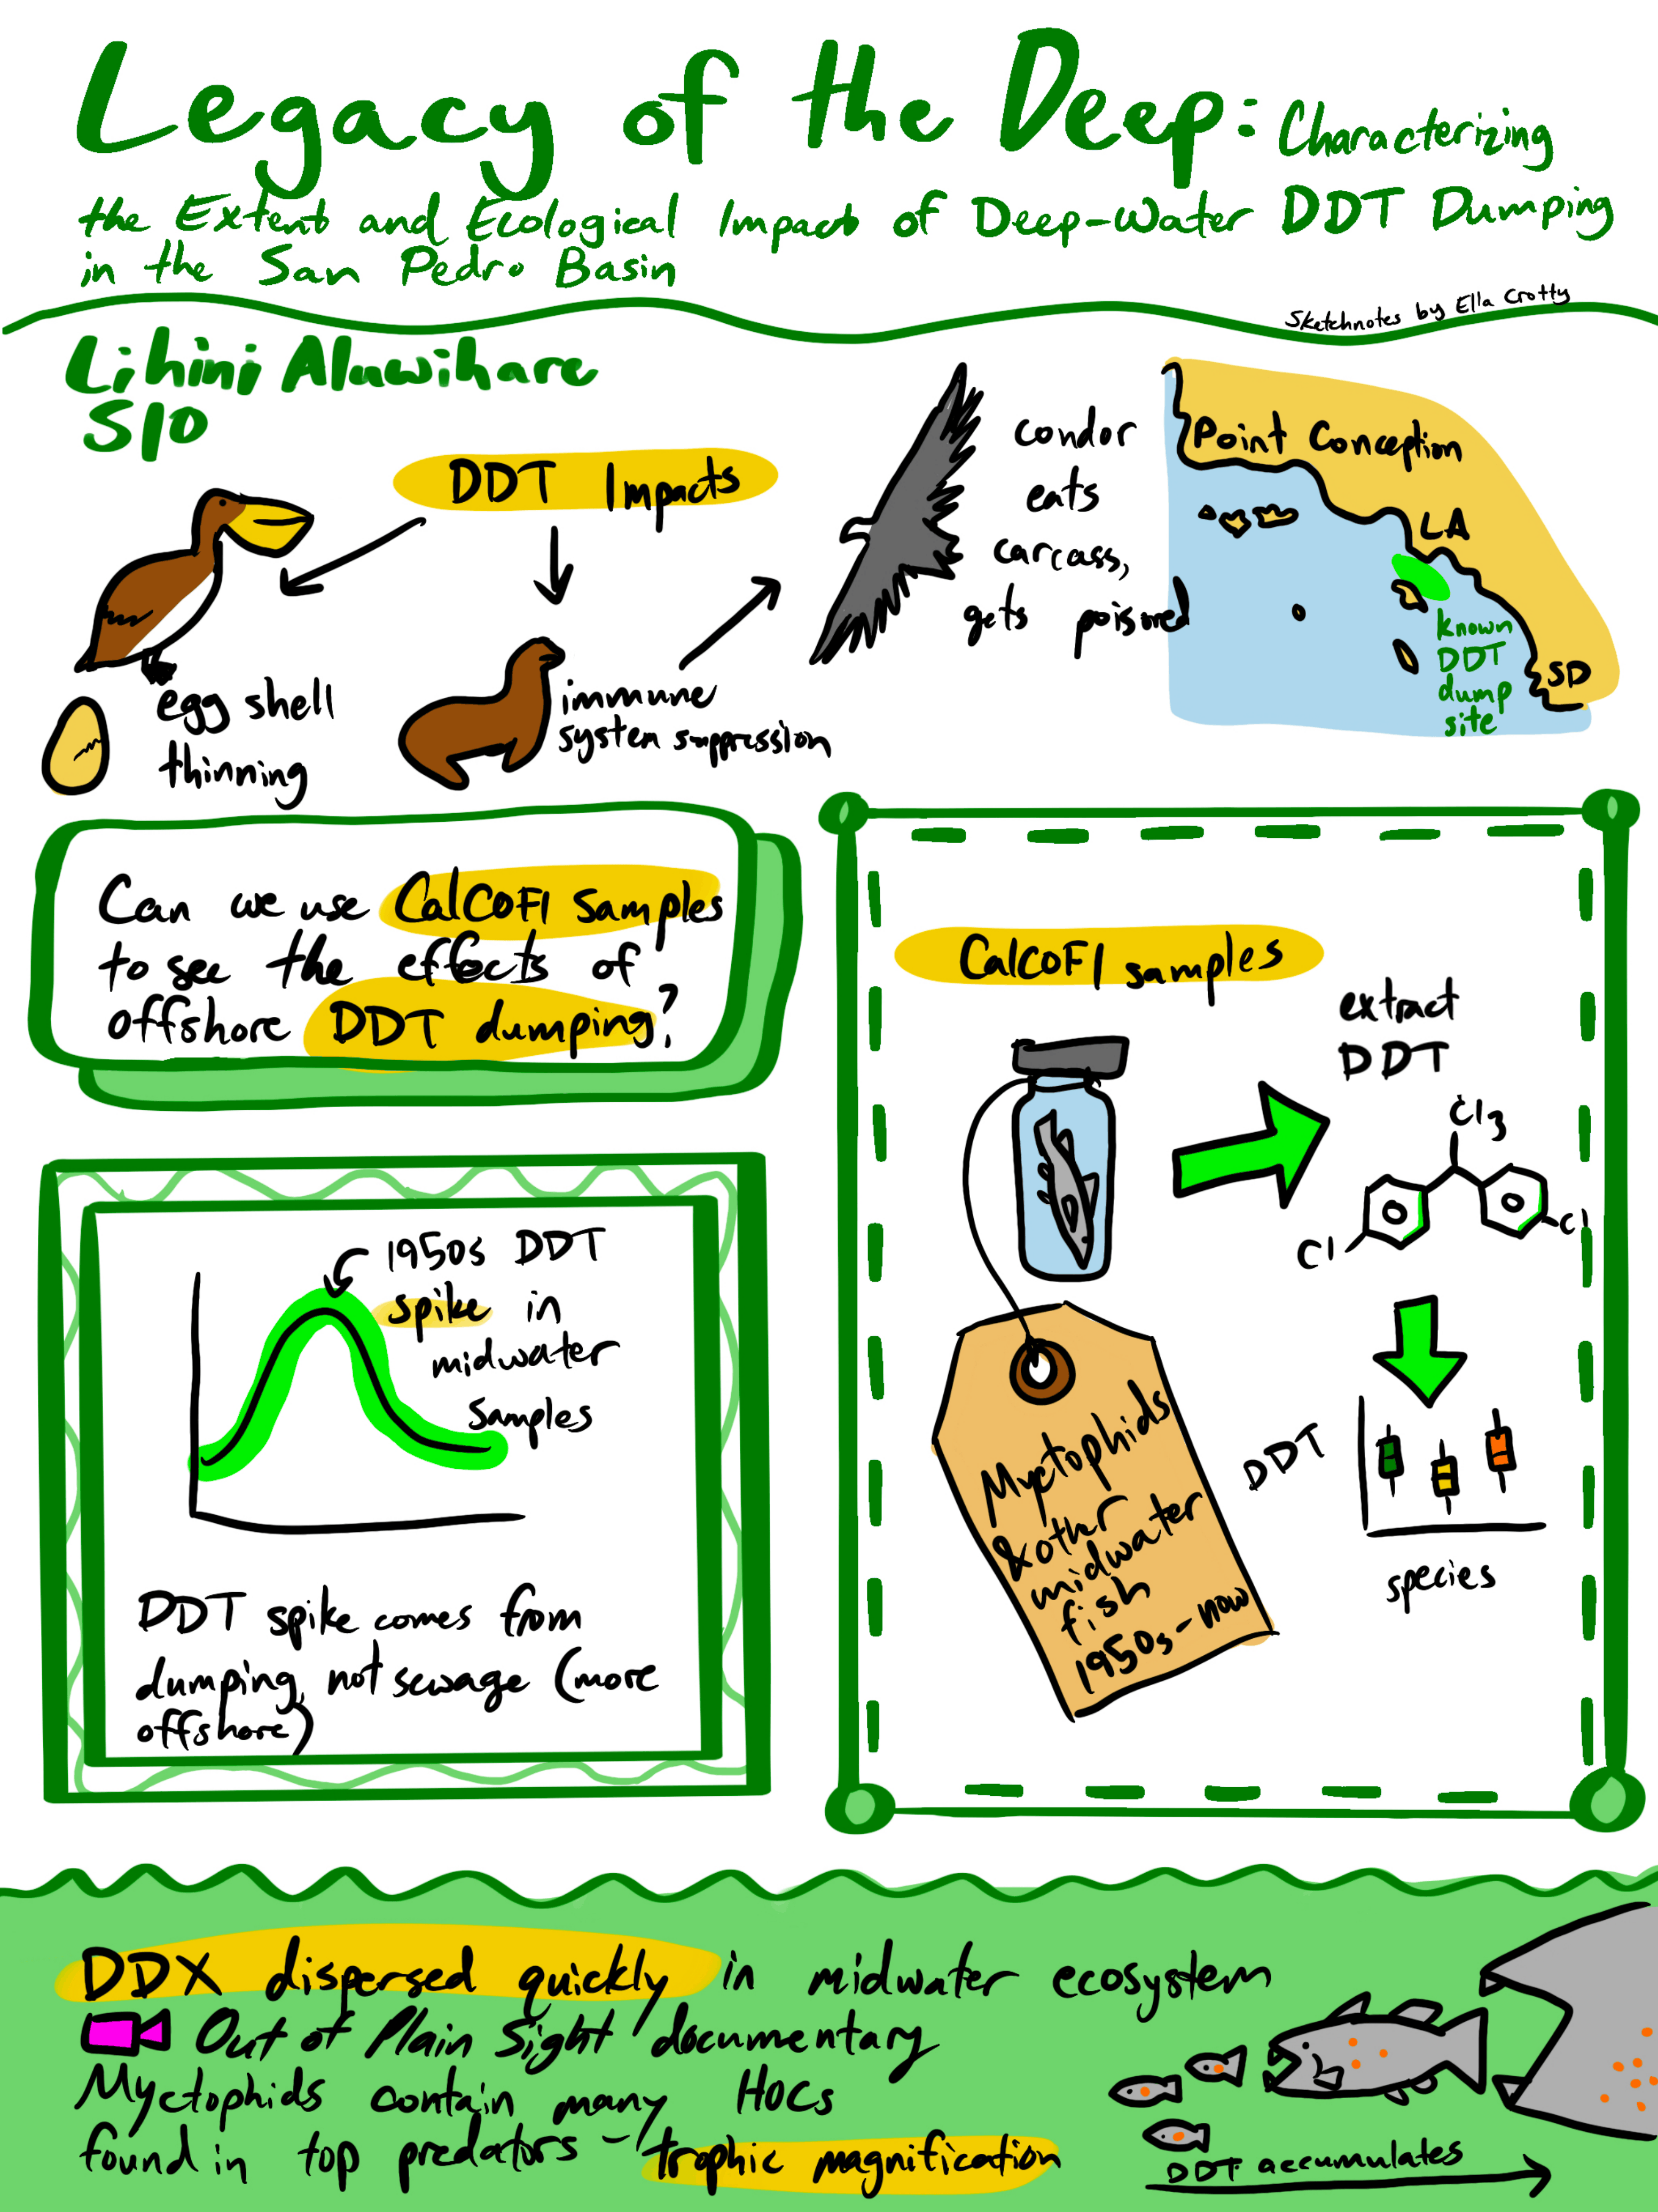 Legacy of the Deep: Characterizing
the Extent and Ecological Impact of Deep-Water DDT Dumping
in the San Pedro Basin
Sketchnotes by Ella Crotty
Lihini Aluwihare
SIO
DDT Impacts
egg shell
thinning
immune
system suppression
condor
eats
carcass,
gets poisoned
Point Conception
LA
known
DDT
dump
site
SD
Can we use CalCOFI samples
to see the effects of
offshore DDT dumping?
CalCOFI samples
extract
DDT
Cl3
Cl
Cl
Myctophids
& other
midwater
fish
1950s - now
DDT
species
1950s DDT
spike in
midwater
samples
DDT spike comes from
dumping, not sewage (more
offshore)
DDX dispersed quickly in midwater ecosystem
Out of Plain Sight documentary
Myctophids contain many HOCs
found in top predators - trophic magnification
DDT accumulates